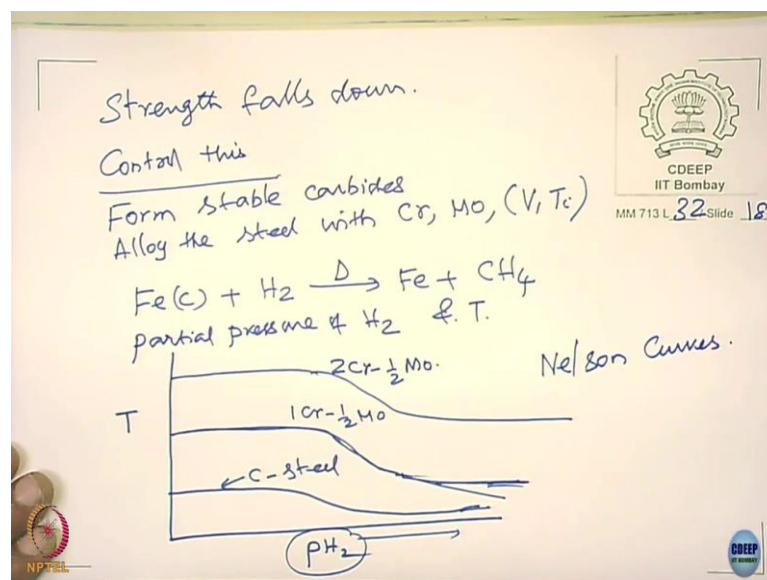 Strength falls down.
Control this
Form stable carbides
Alloy the steel with Cr, Mo, (V, Ti)
Fe(C) + H2 —Δ→ Fe + CH4
partial pressure of H2 & T.
Nelson Curves.
2Cr-½Mo.
1Cr-½Mo
T
C-steel
PH2
CDEEP
IIT Bombay
MM 713 L 32 Slide 18
NPTEL
CDEEP
IIT BOMBAY